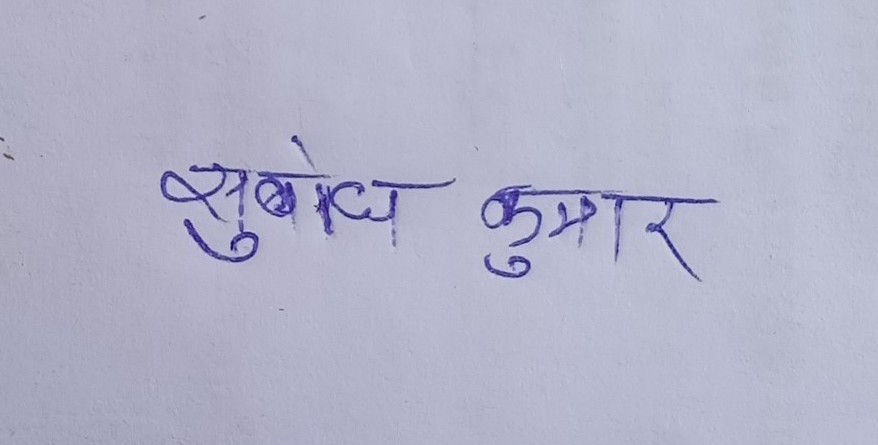 सुबोध कुमार